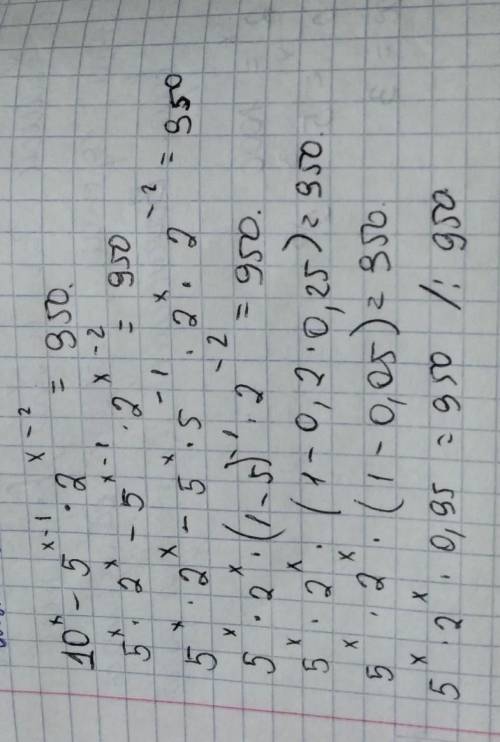 10^x - 5^(x-1) · 2^(x-2) = 950.
5^x · 2^x - 5^(x-1) · 2^(x-2) = 950
5^x · 2^x - 5^x · 5^(-1) · 2^x · 2^(-2) = 950
5^x · 2^x · (1-5)^(-1) · 2^(-2) = 950.
5^x · 2^x · (1-0,2·0,25) = 950.
5^x · 2^x · (1-0,05) = 950.
5^x · 2^x · 0,95 = 950 /: 950